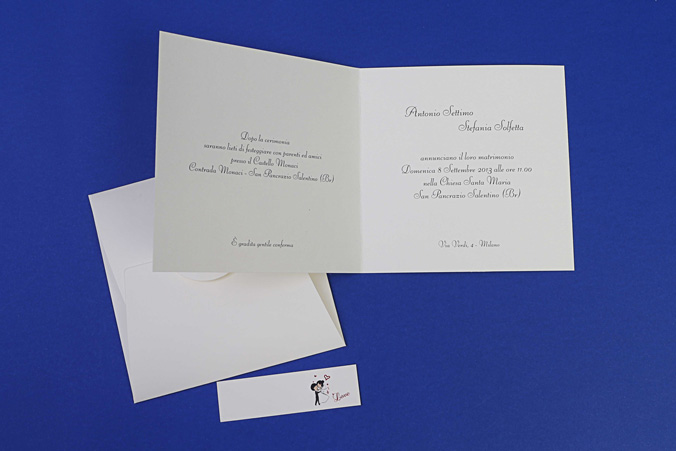 Dopo la cerimonia
saranno lieti di festeggiare con parenti ed amici
presso il Castello Monaci
Contrada Monaci - San Pancrazio Salentino (Br)
È gradita gentile conferma
Antonio Settimo
Stefania Solfetta
annunciano il loro matrimonio
Domenica 8 Settembre 2013 alle ore 11.00
nella Chiesa Santa Maria
San Pancrazio Salentino (Br)
Via Verdi, 4 - Milano
Love